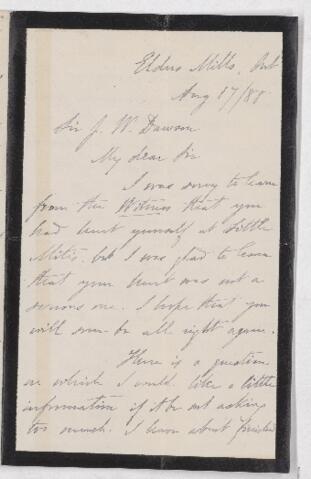 Elders Mills, Ont
Aug 17/88
Sir J. W. Dawson
My dear Sir
I was sorry to learn
from the Witness that you
had hurt yourself at Little
Métis, but I was glad to learn
that your hurt was not a
serious one. I hope that you
will soon be all right again.
There is a question
on which I would like a little
information if it be not asking
too much. I have about finished